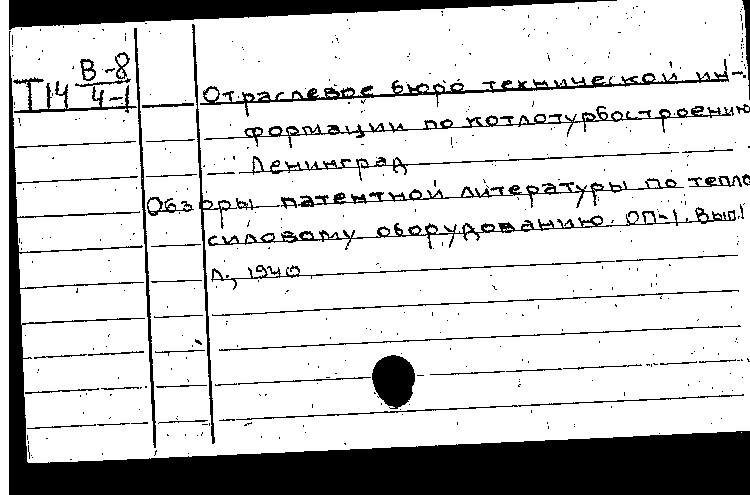 Т14 В-8/4-1
Отраслевое бюро технической ин-
формации по котлотурбостроению
Ленинград
Обзоры патентной литературы по тепло
силовому оборудованию. ОП-1. Вып.1
Л., 1940